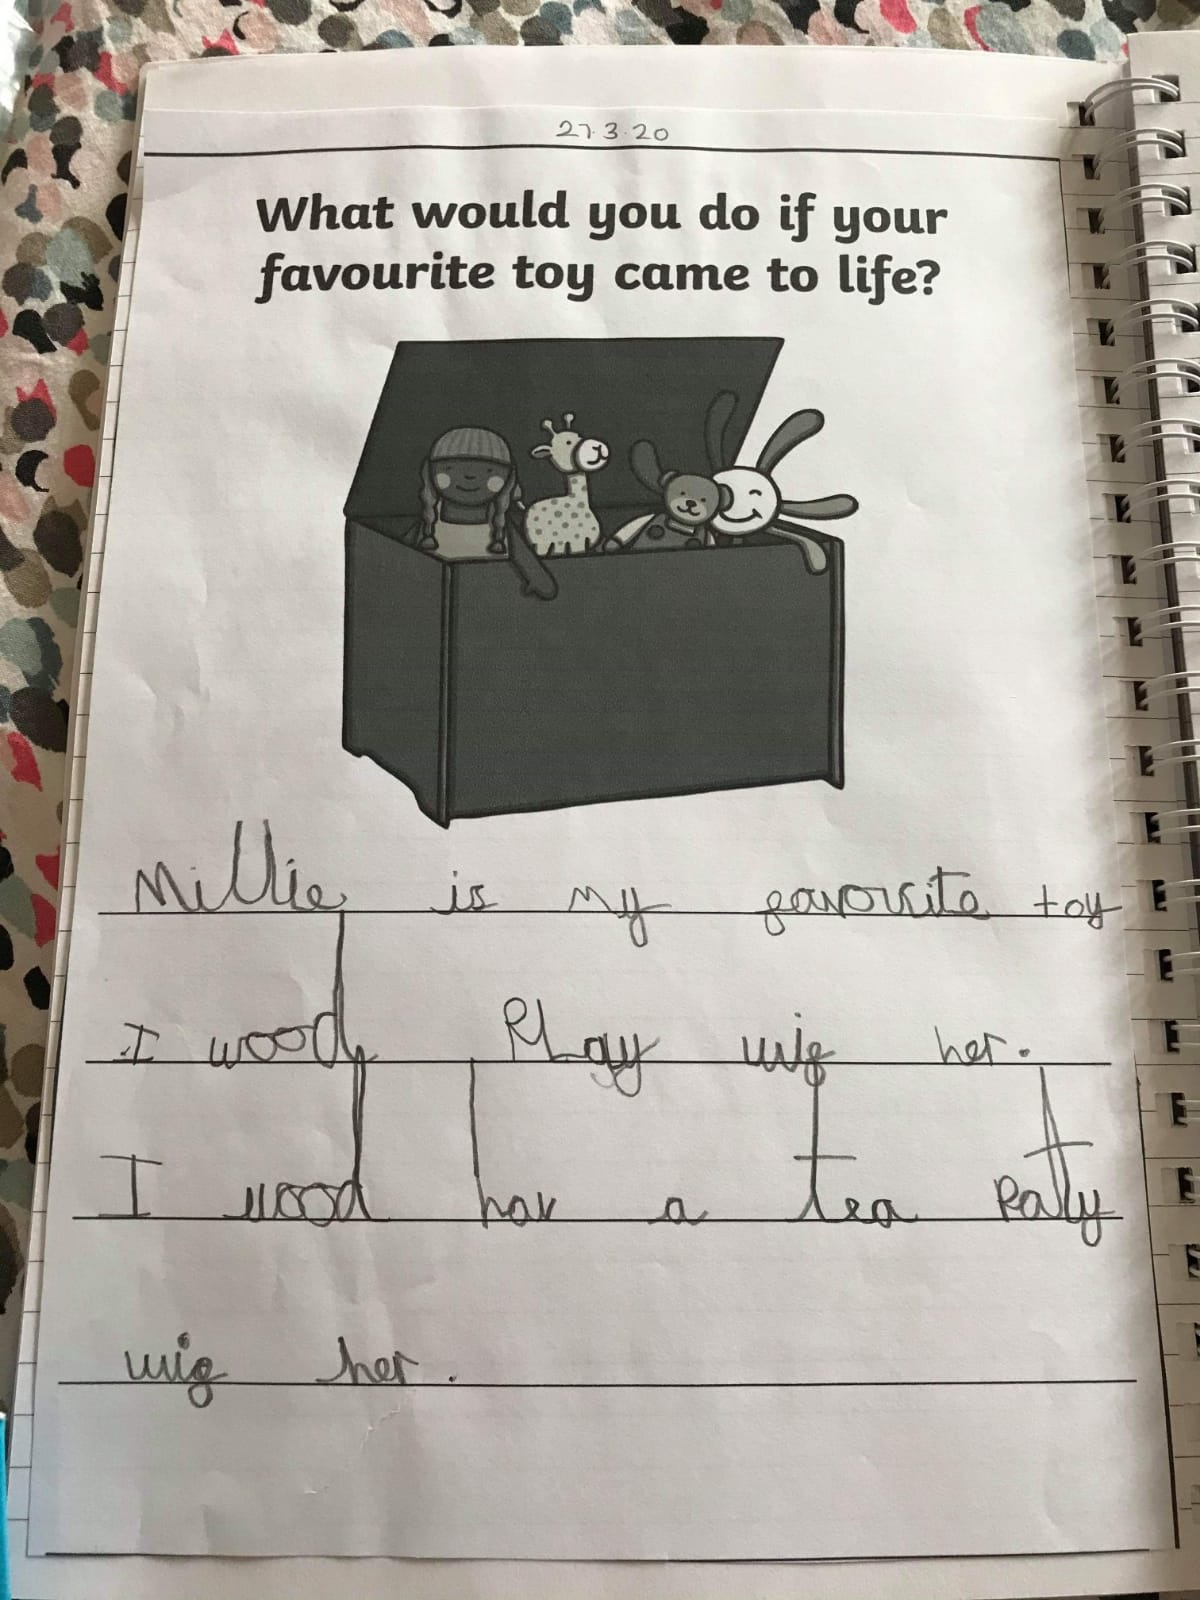 27.3.20
What would you do if your
favourite toy came to life?
Millie is my favourite toy
I wood Play wig her.
I wood hav a tea Party
wig her.